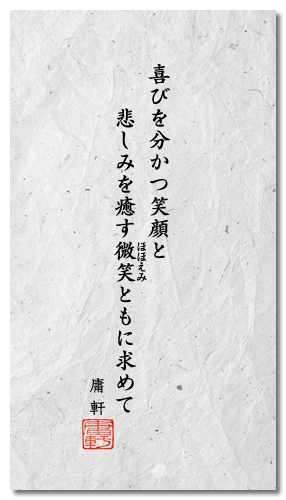 喜びを分かつ笑顔と
悲しみを癒す微笑ともに求めて
ほほえみ
庸軒